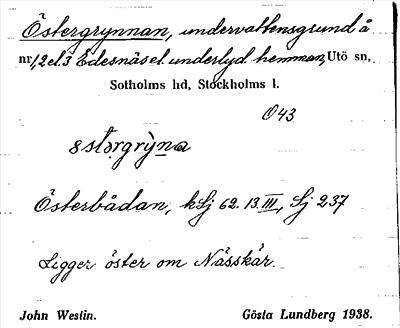 Östergrynnan, undervattensgrund å
nr 1, 2 el. 3 Edesnäs el. underlyd. hemman, Utö sn,
Sotholms hd, Stockholms l.
Ö 43
östərgrỳna
Österbådan, kSj 62. 13. III, Sj 237
Ligger öster om Nässkär.
John Westin. Gösta Lundberg 1938.